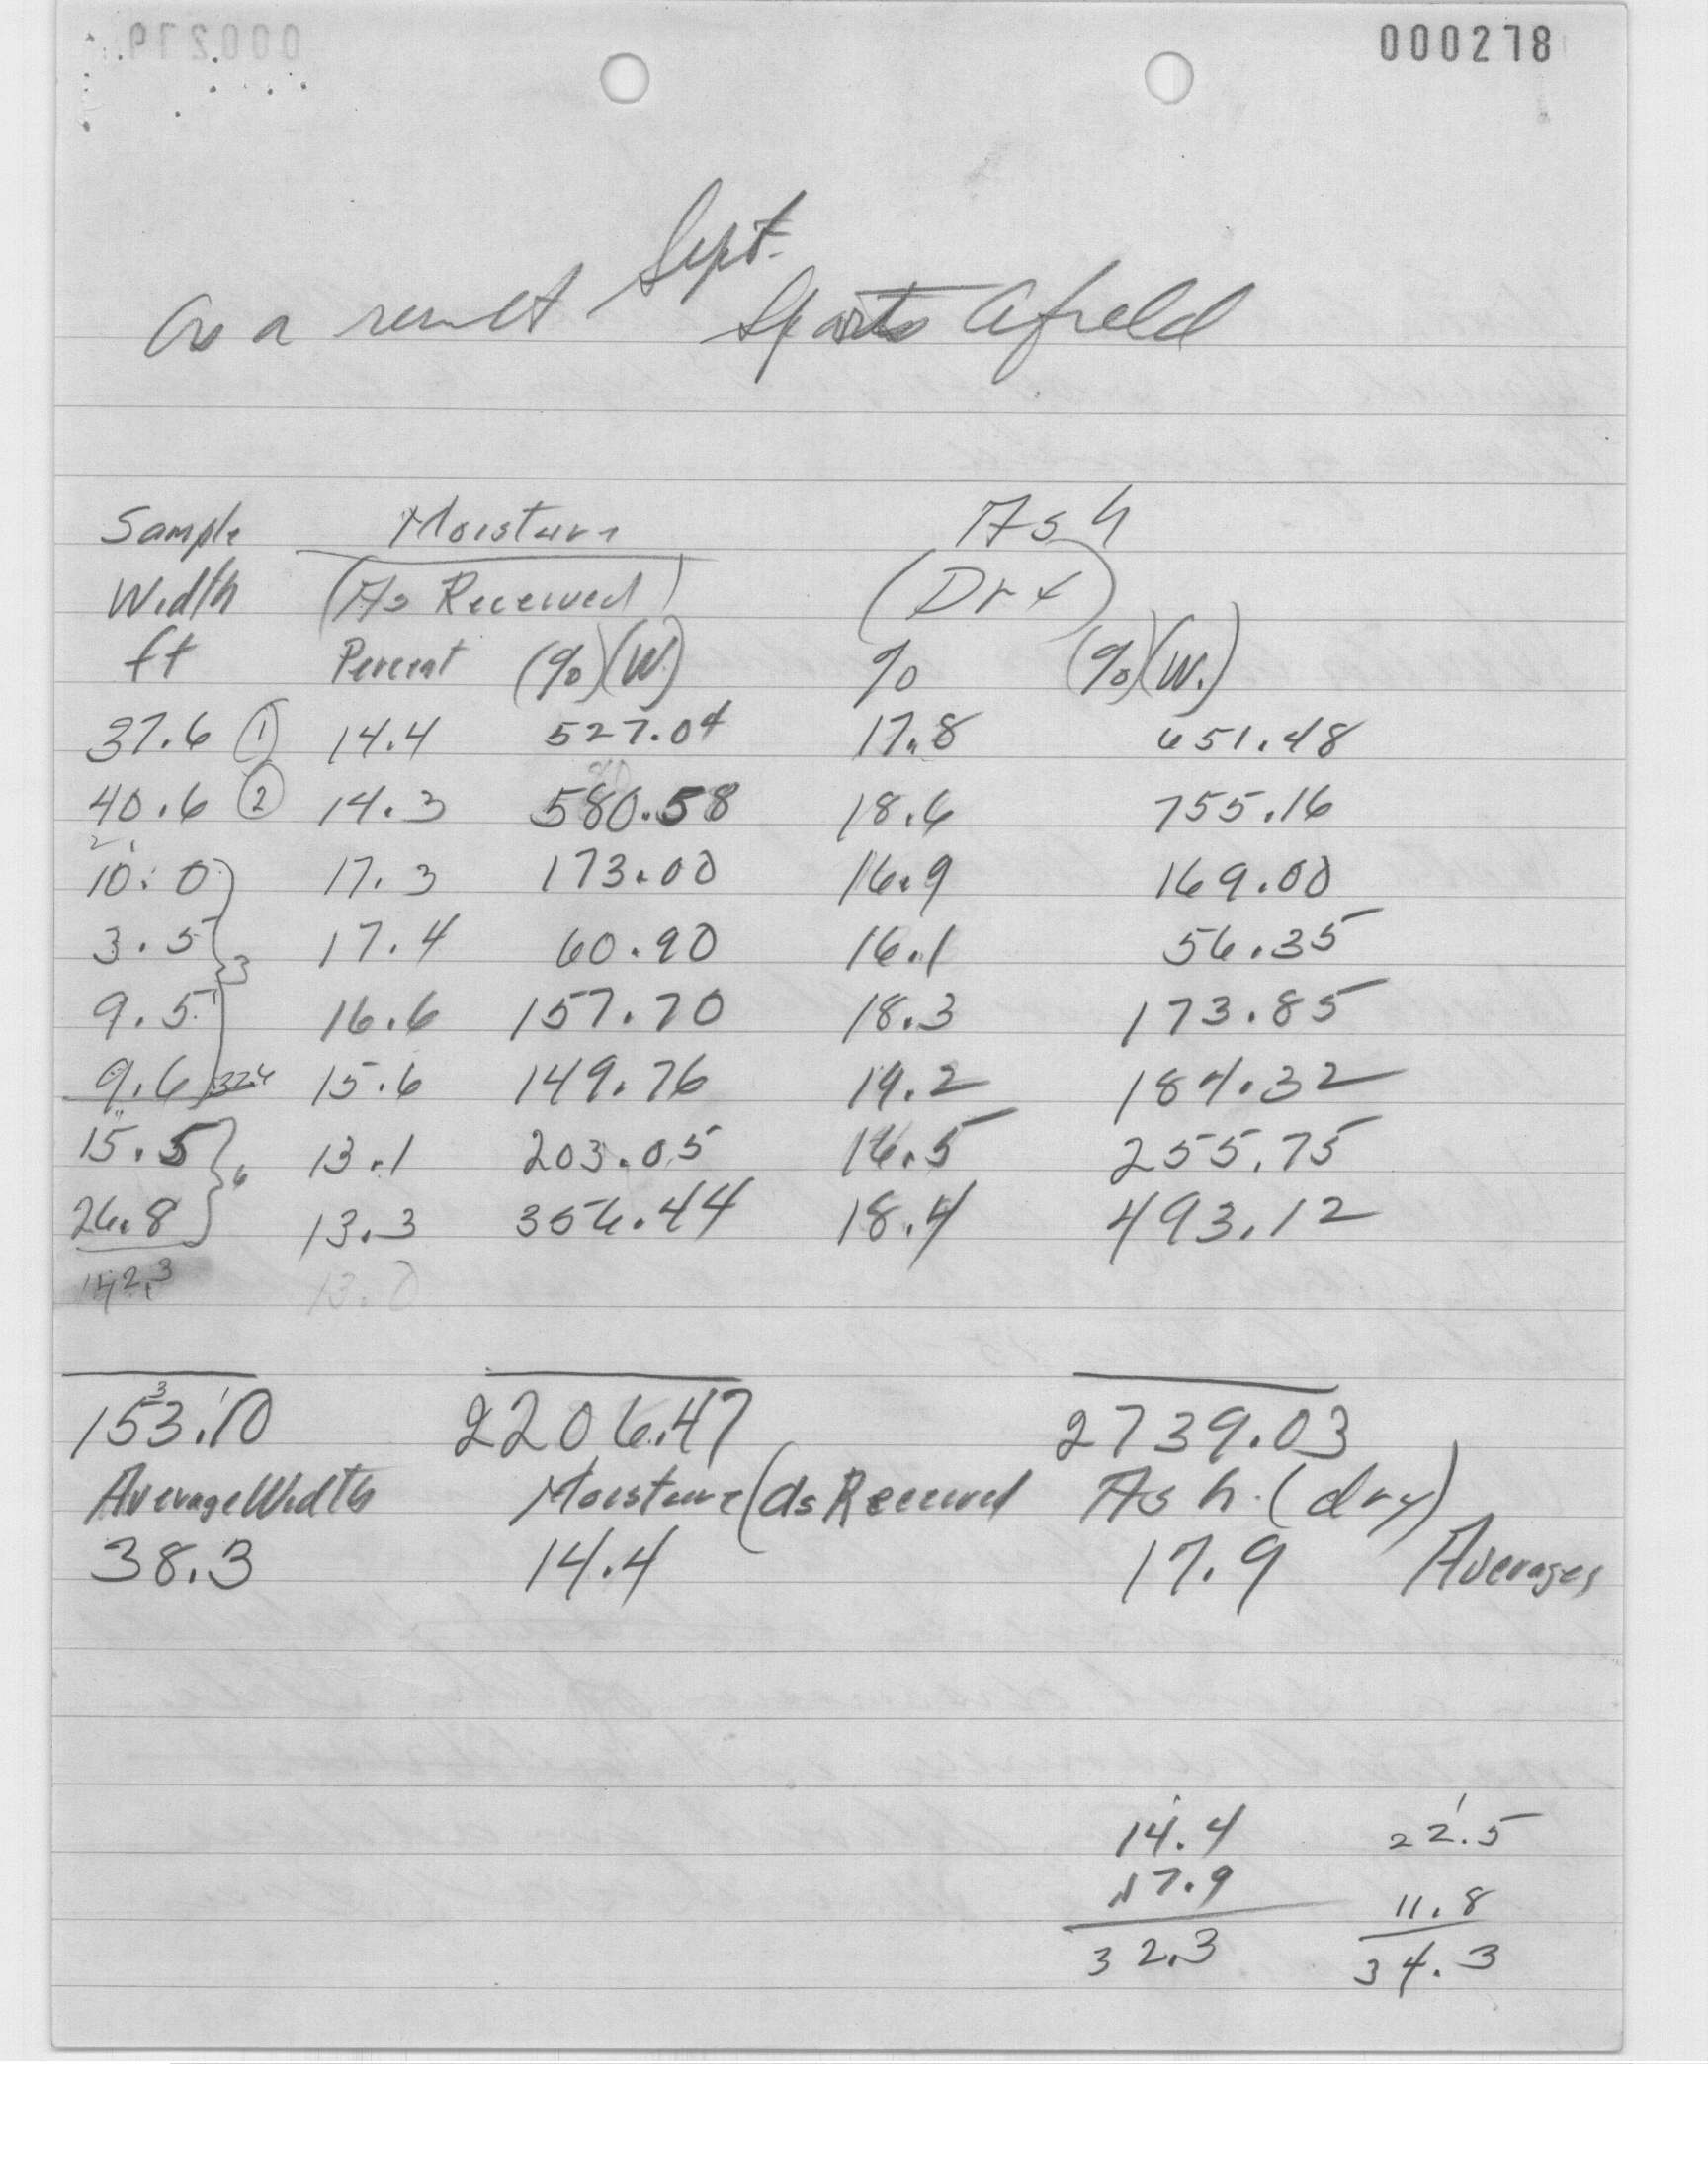 000278
Sept.
As a result Sports Afield
Sample Moisture Ash
Width (As Received) (Dry)
ft Percent (%)(W.) % (%)(W.)
37.6 ① 14.4 527.04 17.8 651.48
40.6 ② 14.3 580.58 18.6 755.16
10.0 17.3 173.00 16.9 169.00
3.5 17.4 60.90 16.1 56.35
3
9.5 16.6 157.70 18.3 173.85
9.6 32.6 15.6 149.76 19.2 184.32
15.5 13.1 203.05 16.5 255.75
6
26.8 13.3 356.44 18.4 493.12
142.3 13.0
153.10 2206.47 2739.03
Average Width Moisture (As Received Ash (dry)
38.3 14.4 17.9 Averages
14.4 22.5
17.9 11.8
32.3 34.3